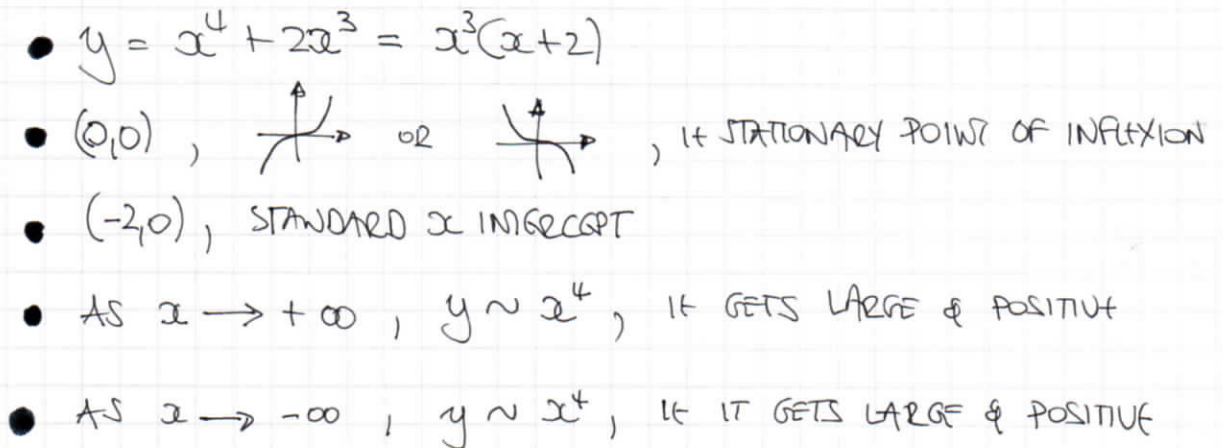 y = x⁴ + 2x³ = x³(x+2)
(0,0), OR , IE STATIONARY POINT OF INFLEXION
(-2,0), STANDARD x INTERCEPT
AS x → +∞, y ~ x⁴, IE GETS LARGE & POSITIVE
AS x → -∞, y ~ x⁴, IE IT GETS LARGE & POSITIVE